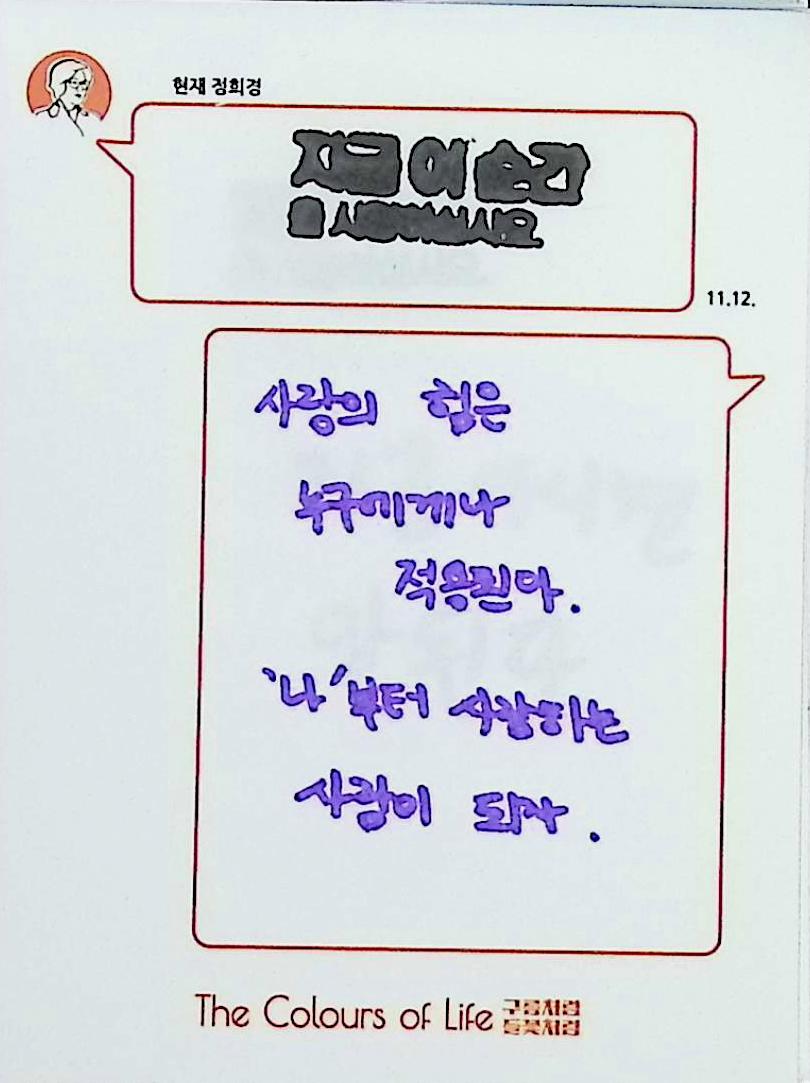 현재 정희경
지금 이 순간
을 사랑하십시오
11.12.
사랑의 힘은
누구에게나
적용된다.
'나'부터 사랑하는
사람이 되자.
The Colours of Life 구름처럼
들꽃처럼